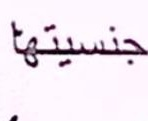 جنسيتها